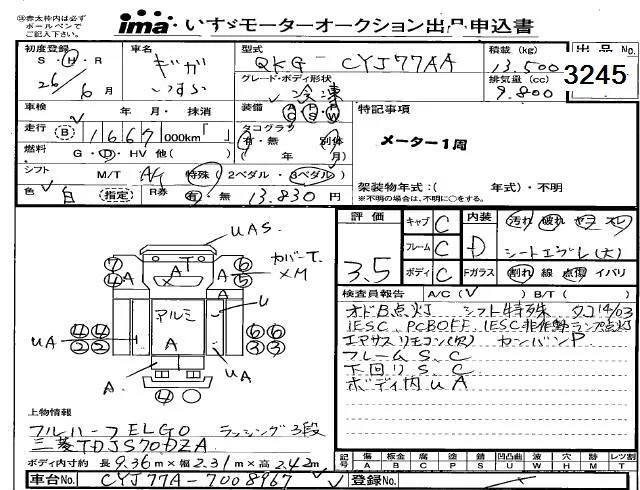 ※赤太枠内は必ず
ボールペンで
ご記入下さい。
ima いすゞモーターオークション出品申込書
初度登録 車名 型式 積載(kg) 出品No.
S・H・R ギガ QKG-CYJ77AA 13.500
グレード・ボディ形状 排気量(cc) 3245
26年 6月 いすゞ 冷凍 9.800
車検 年・月・抹消 装備 AC PS PW 特記事項
走行 B 1667 000km「 」 タコグラフ 有・無 別体 メーター1周
燃料 G・D・HV 他( ) ( 年 月)
シフト M/T 特殊(2ペダル)(3ペダル) 架装物年式:( 年式)・不明
※不明の場合は、不明に○をする。
色 白 指定 R券 有・無 13.830円
評価 キャブ C 内装 汚れ 破れ ヤコ スレ
フレーム C D シートエグレ(大)
3.5 ボディ C Fガラス 割れ 線 点傷 イバリ
検査員報告 A/C( ) B/T( )
オドB点灯 シフト特殊 タコ14/03
IESC、PCBOFF、IESC非作動ランプ点灯
エアサスリモコン(欠) カンバンP
フレームS、C
下回りS、C
ボディ内UA
UAS
カバーT.
XM
T
A
アルミ
A
U
UA
UA
A
上物情報
フルハーフELG0 ラッシング3段
三菱TDJS70DZA
ボディ内寸約 長9.36m×幅2.31m×高2.42m
記号 傷A 板金B 腐C 塗P 錆S 凹凸凹曲U 波W 穴H 跡M マド× レツ割T
車台No. CYJ77A-7008967 登録No.